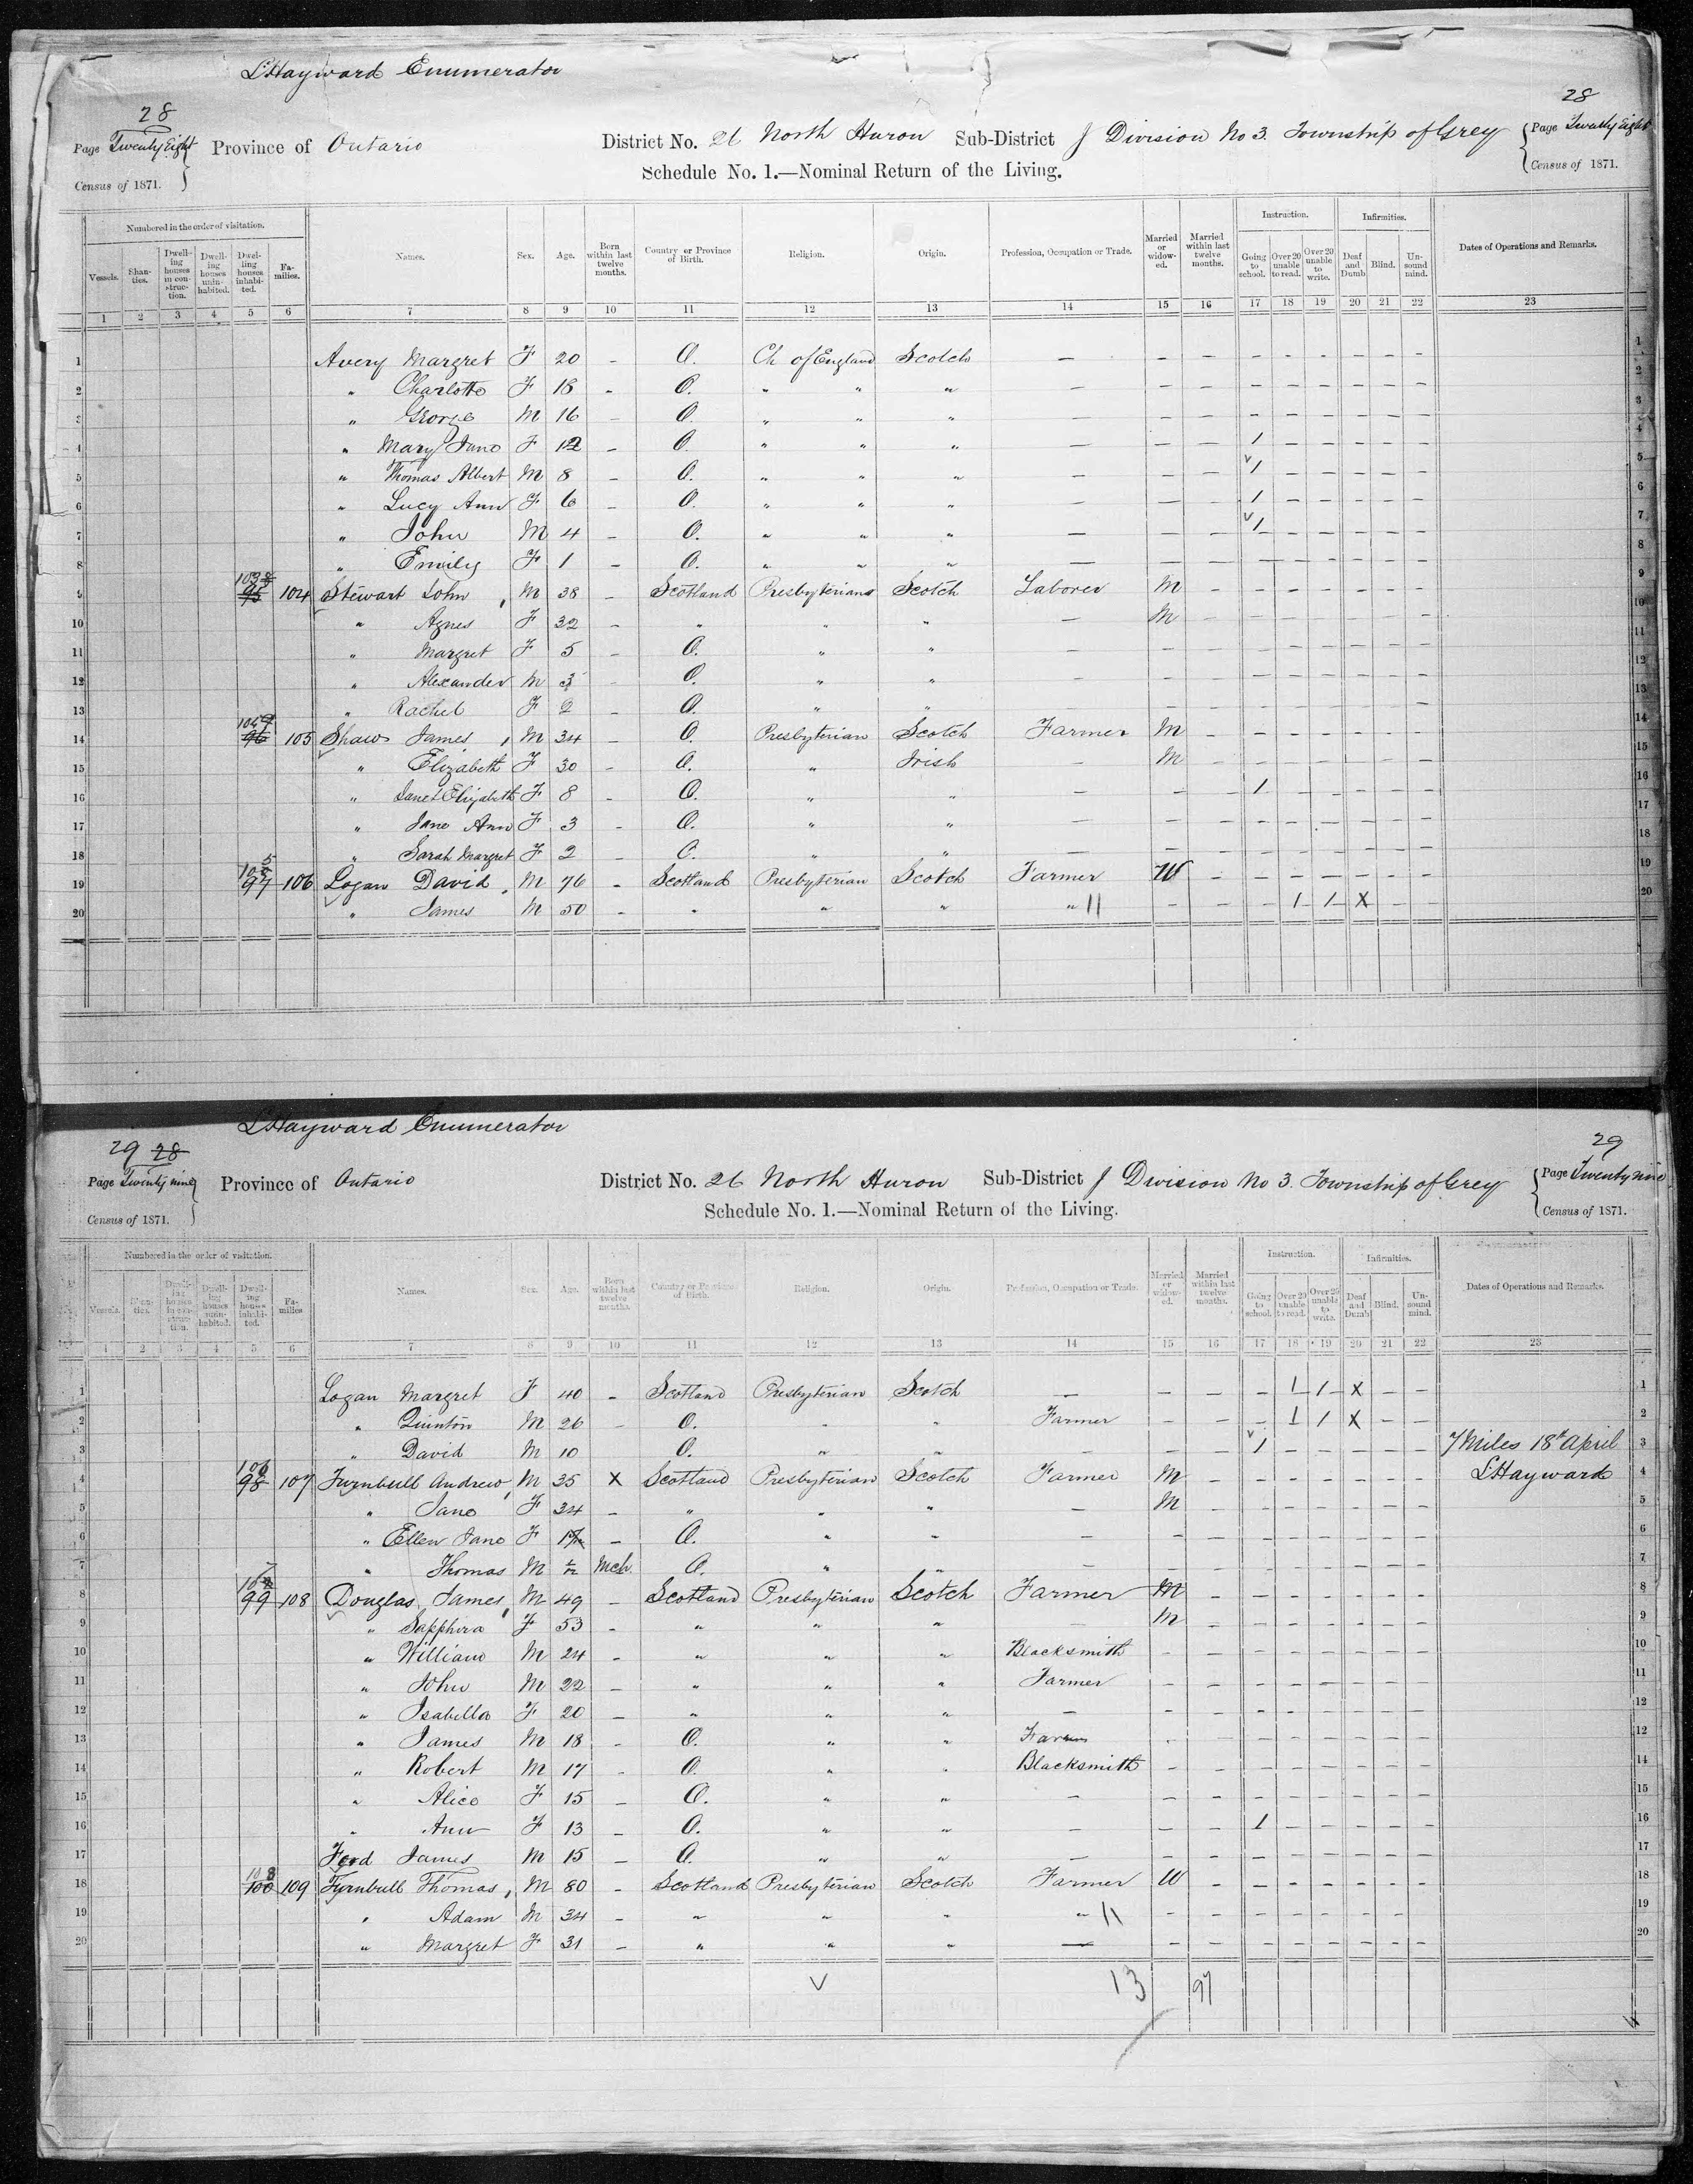 L Hayward Enumerator
28 28
Page Twenty Eight Province of Ontario District No. 26 North Huron Sub-District J Division No 3. Township of Grey Page Twenty Eight
Census of 1871. Schedule No. 1.—Nominal Return of the Living. Census of 1871.
Numbered in the order of visitation. Instruction. Infirmities.
Vessels. Shanties. Dwelling houses in construction. Dwelling houses uninhabited. Dwelling houses inhabited. Families. Names. Sex. Age. Born within last twelve months. Country or Province of Birth. Religion. Origin. Profession, Occupation or Trade. Married or widowed. Married within last twelve months. Going to school. Over 20 unable to read. Over 20 unable to write. Deaf and Dumb Blind. Unsound mind. Dates of Operations and Remarks.
1 2 3 4 5 6 7 8 9 10 11 12 13 14 15 16 17 18 19 20 21 22 23
1 Avery Margret F 20 - O. Ch of England Scotch — - - - - - - - - 1
2 " Charlotte F 18 - O. " " " — - - - - - - - - 2
3 " George M 16 - O. " " " — - - - - - - - - 3
4 " Mary Jane F 12 - O. " " " — - - 1 - - - - - 4
5 " Thomas Albert M 8 - O. " " " — - - 1 - - - - - 5
6 " Lucy Ann F 6 - O. " " " — - - 1 - - - - - 6
7 " John M 4 - O. " " " — - - 1 - - - - - 7
8 " Emily F 1 - O. " " " — - - - - - - - - 8
9 95 104 Stewart John M 38 - Scotland Presbyterian Scotch Laborer M - - - - - - - 9
10 " Agnes F 32 - " " " — M - - - - - - - 10
11 " Margret F 5 - O. " " — - - - - - - - - 11
12 " Alexander M 3 - O. " " — - - - - - - - - 12
13 " Rachel F 2 - O. " " — - - - - - - - - 13
14 96 105 Shaw James M 34 - O Presbyterian Scotch Farmer M - - - - - - - 14
15 " Elizabeth F 30 - O. " Irish — M - - - - - - - 15
16 " Janet Elizabeth F 8 - O. " " — - - 1 - - - - - 16
17 " Jane Ann F 3 - O. " " — - - - - - - - - 17
18 " Sarah Margret F 2 - O. " " — - - - - - - - - 18
19 97 106 Logan David M 76 - Scotland Presbyterian Scotch Farmer W - - - - - - - 19
20 " James M 50 - " " " " 11 - - - 1 1 X - - 20
L Hayward Enumerator
29 28 29
Page Twenty nine Province of Ontario District No. 26 North Huron Sub-District J Division No 3. Township of Grey Page Twenty nine
Census of 1871. Schedule No. 1.—Nominal Return of the Living. Census of 1871.
Numbered in the order of visitation. Instruction. Infirmities.
Vessels. Shanties. Dwelling houses in construction. Dwelling houses uninhabited. Dwelling houses inhabited. Families Names. Sex. Age. Born within last twelve months. Country or Province of Birth. Religion. Origin. Profession, Occupation or Trade. Married or widowed. Married within last twelve months. Going to school. Over 20 unable to read. Over 20 unable to write. Deaf and Dumb Blind. Unsound mind. Dates of Operations and Remarks.
1 2 3 4 5 6 7 8 9 10 11 12 13 14 15 16 17 18 19 20 21 22 23
1 Logan Margret F 40 - Scotland Presbyterian Scotch — - - - 1 1 X - - 1
2 " Quinton M 26 - O. " " Farmer - - - 1 1 X - - 2
3 " David M 10 O. " " - - - 1 - - - - - 7 Miles 18th April 3
4 98 107 Turnbull Andrew M 35 X Scotland Presbyterian Scotch Farmer M - - - - - - - L Hayward 4
5 " Jane F 34 - " " " - M - - - - - - - 5
6 " Ellen Jane F - O. " " - - - - - - - - - 6
7 " Thomas M Mch. O. " " - - - - - - - - - 7
8 99 108 Douglas James M 49 - Scotland Presbyterian Scotch Farmer M - - - - - - - 8
9 " Sapphira F 53 - " " " - M - - - - - - - 9
10 " William M 24 - " " " Blacksmith - - - - - - - - 10
11 " John M 22 - " " " Farmer - - - - - - - - 11
12 " Isabella F 20 - " " " - - - - - - - - - 12
13 " James M 18 - O. " " Farm - - - - - - - - 12
14 " Robert M 17 - O. " " Blacksmith - - - - - - - - 14
15 " Alice F 15 - O. " " - - - - - - - - - 15
16 " Ann F 13 - O. " " - - - 1 - - - - - 16
17 Ford James M 15 - O. " " - - - - - - - - - 17
18 108 100 109 Turnbull Thomas M 80 - Scotland Presbyterian Scotch Farmer W - - - - - - - 18
19 " Adam M 34 - " " " " 11 - - - - - - - - 19
20 " Margret F 31 - " " " — - - - - - - - - 20
V 13 97